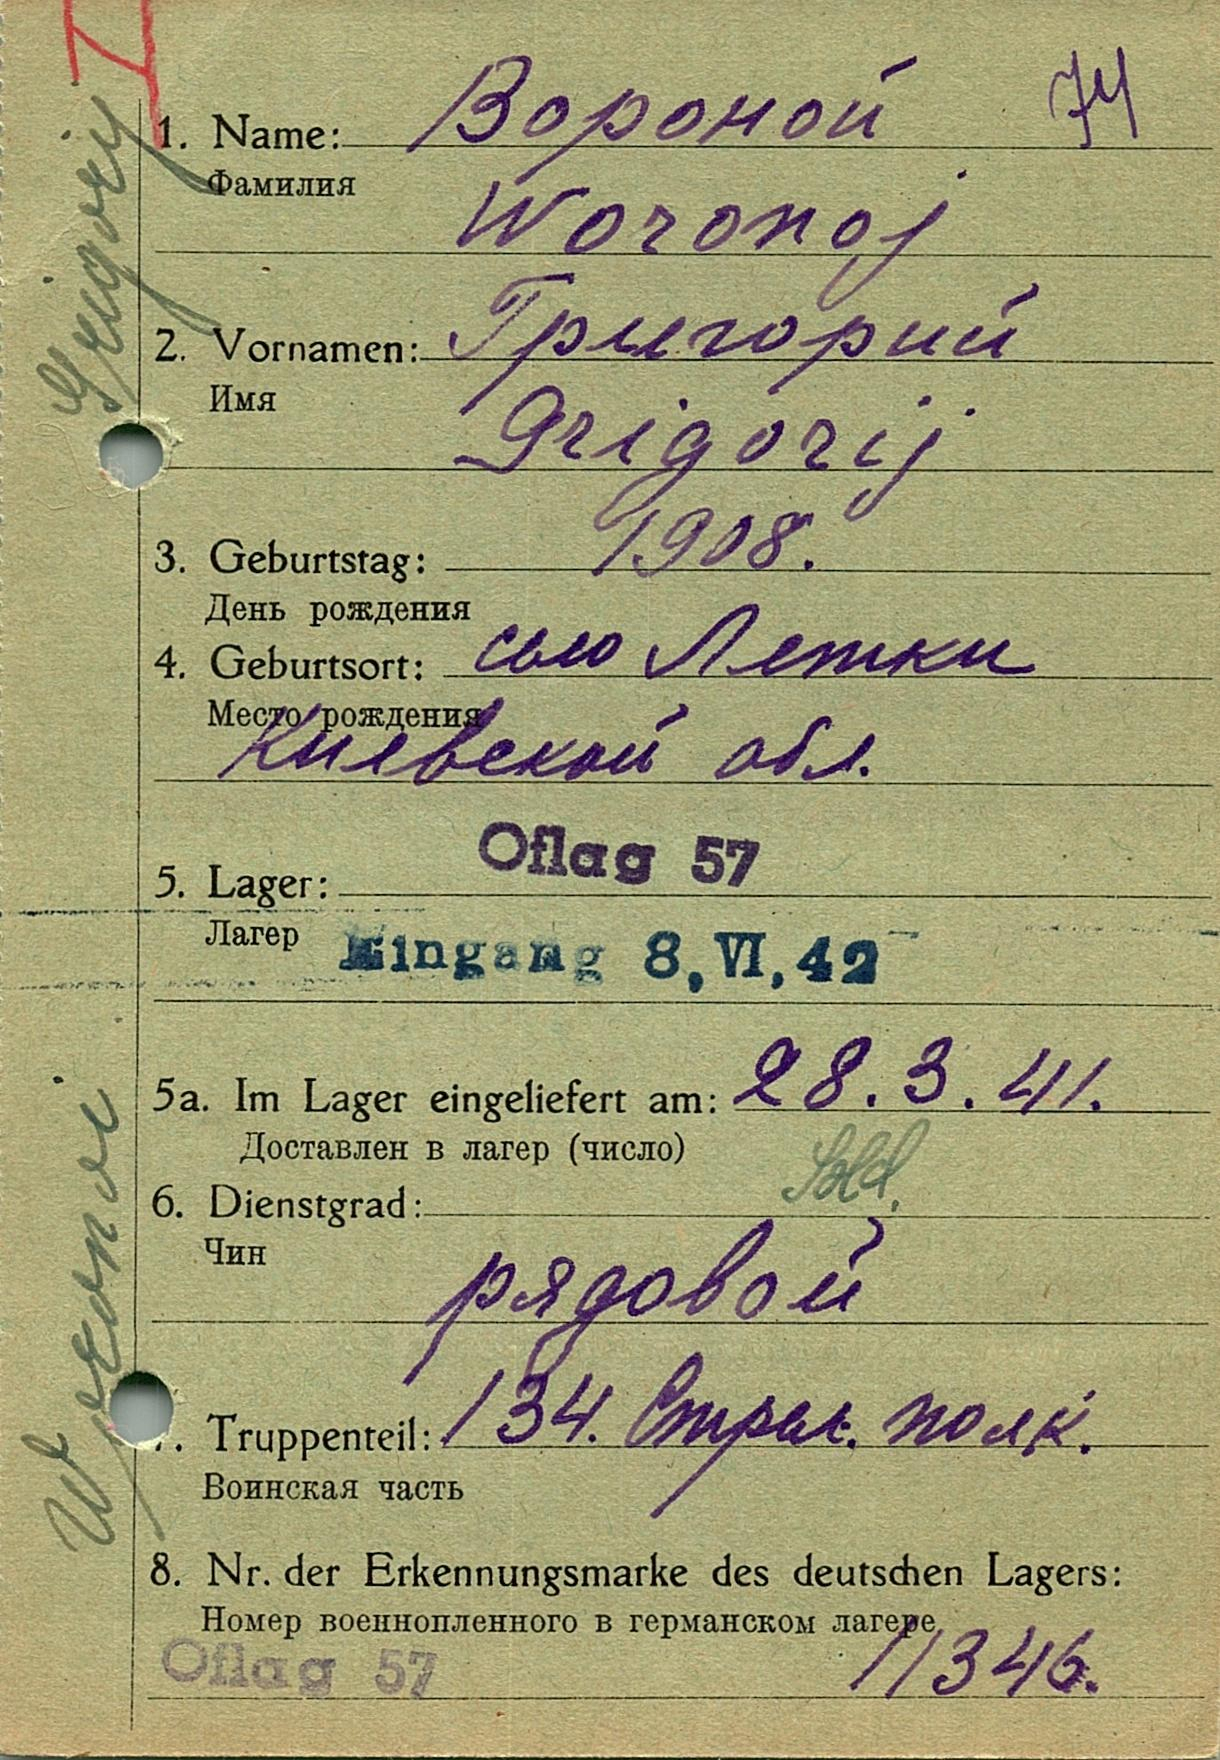 74
1. Name: Вороной
Фамилия
Woronoj
2. Vornamen: Григорий
Имя
Grigorij
3. Geburtstag: 1908.
День рождения
4. Geburtsort: село Летки
Место рождения
Киевской обл.
Oflag 57
5. Lager:
Лагер
Eingang 8,VI,42
5a. Im Lager eingeliefert am: 28.3.41.
Доставлен в лагер (число)
Sold.
6. Dienstgrad:
Чин
рядовой
7. Truppenteil: 134. Стрел. полк.
Воинская часть
8. Nr. der Erkennungsmarke des deutschen Lagers:
Номер военнопленного в германском лагере
Oflag 57 11346.
Woronoi Grigorij